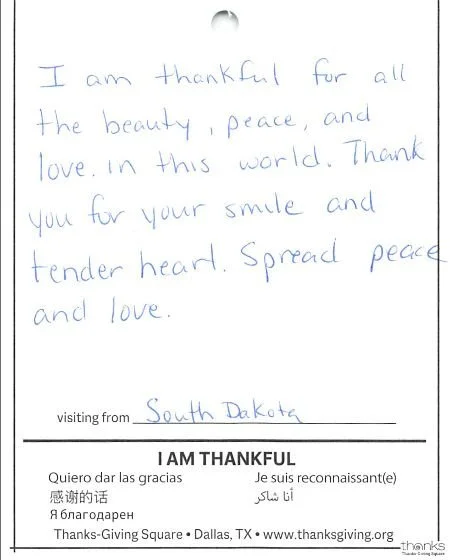 I am thankful for all
the beauty, peace, and
love. in this world. Thank
you for your smile and
tender heart. Spread peace
and love.
visiting from South Dakota
I AM THANKFUL
Quiero dar las gracias Je suis reconnaissant(e)
感谢的话 أنا شاكر
Я благодарен
Thanks-Giving Square • Dallas, TX • www.thanksgiving.org
thanks
Thanks-Giving Square